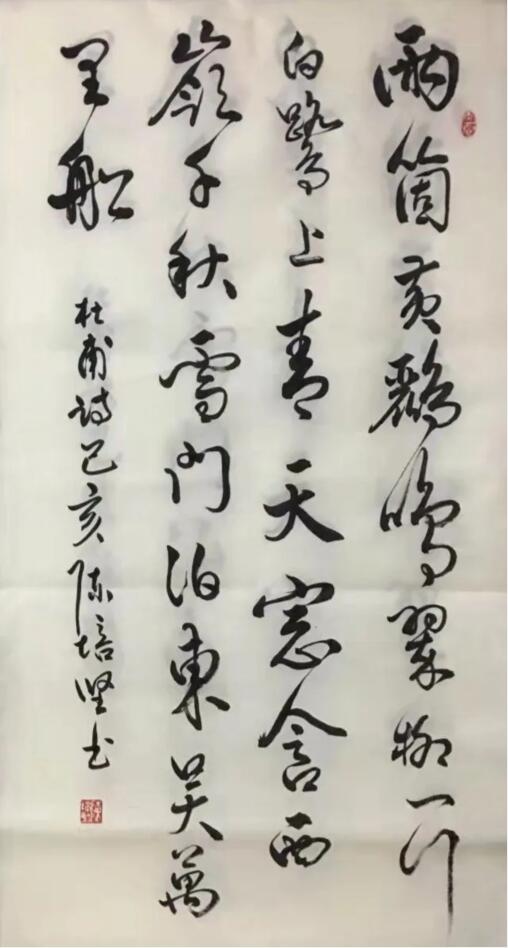 兩箇黃鸝鳴翠柳一行
白鷺上青天窓含西
嶺千秋雪門泊東吴萬
里船
杜甫詩己亥陈培坚书